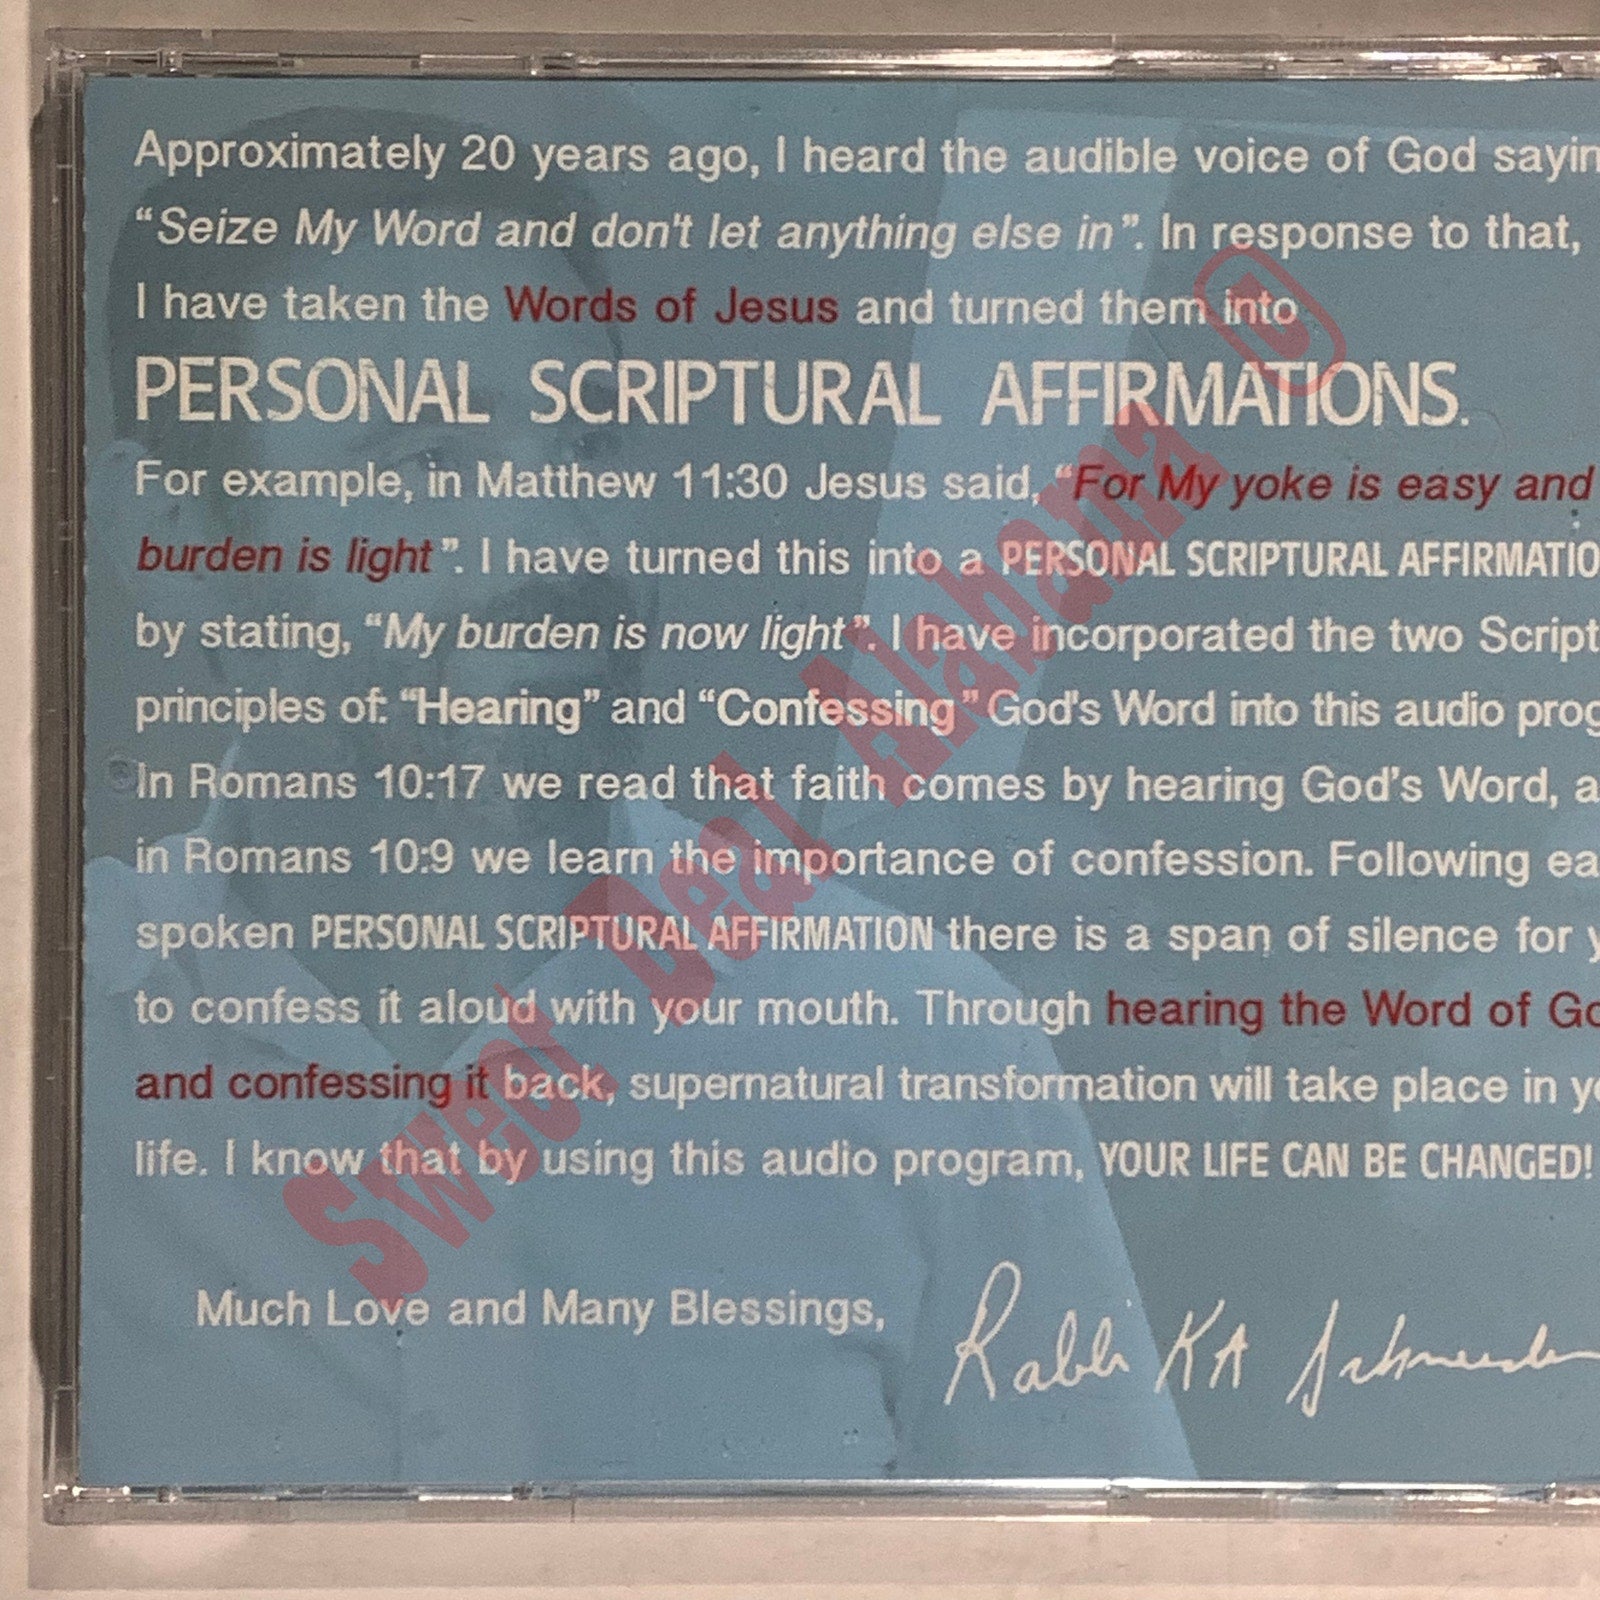 Approximately 20 years ago, I heard the audible voice of God sayin
“Seize My Word and don't let anything else in”. In response to that,
I have taken the Words of Jesus and turned them into
PERSONAL SCRIPTURAL AFFIRMATIONS.
For example, in Matthew 11:30 Jesus said, “For My yoke is easy and
burden is light”. I have turned this into a PERSONAL SCRIPTURAL AFFIRMATIO
by stating, “My burden is now light”. I have incorporated the two Script
principles of: “Hearing” and “Confessing” God's Word into this audio prog
In Romans 10:17 we read that faith comes by hearing God's Word, a
in Romans 10:9 we learn the importance of confession. Following ea
spoken PERSONAL SCRIPTURAL AFFIRMATION there is a span of silence for y
to confess it aloud with your mouth. Through hearing the Word of Go
and confessing it back, supernatural transformation will take place in yo
life. I know that by using this audio program, YOUR LIFE CAN BE CHANGED!
Much Love and Many Blessings,
Rabbi KA Schneider
Sweet Deal Alabama